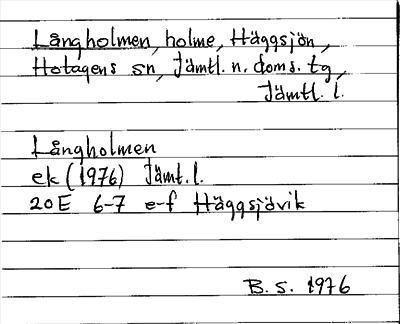 Långholmen, holme, Häggsjön,
Hotagens sn, Jämtl. n. doms. tg,
Jämtl. l.
Långholmen
ek (1976) Jämt. l.
20E 6-7 e-f Häggsjövik
B. S. 1976